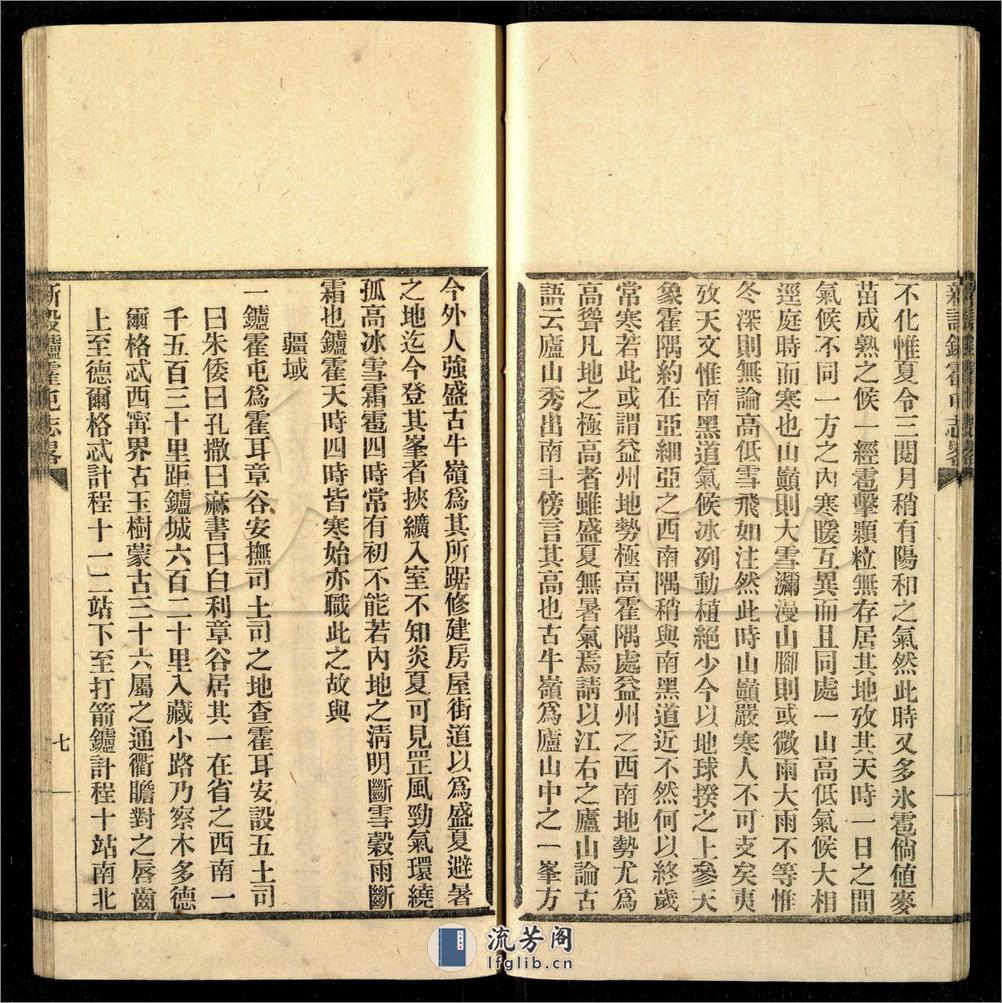 不化惟夏令三閱月稍有陽和之氣然此時又多氷雹倘値麥
苗成熟之候一經雹擊顆粒無存居其地攷其天時一日之間
氣候不同一方之內寒暖互異而且同處一山高低氣候大相
逕庭時而寒也山巔則大雪瀰漫山腳則或微雨大雨不等惟
冬深則無論高低雪飛如注然此時山巔嚴寒人不可支矣夷
攷天文惟南黑道氣候冰冽動植絕少今以地球揆之上參天
象霍隅約在亞細亞之西南隅稍與南黑道近不然何以終歲
常寒若此或謂益州地勢極高霍隅處益州之西南地勢尤爲
高聳凡地之極高者雖盛夏無暑氣焉請以江右之廬山論古
語云廬山秀出南斗傍言其高也古牛嶺爲廬山中之一峯方
今外人強盛古牛嶺爲其所踞修建房屋街道以爲盛夏避暑
之地迄今登其峯者挾纊入室不知炎夏可見罡風勁氣環繞
孤高冰雪霜雹四時常有初不能若內地之淸明斷雪穀雨斷
霜也鑪霍天時四時皆寒始亦職此之故與
疆域
一鑪霍屯爲霍耳章谷安撫司土司之地查霍耳安設五土司
曰朱倭曰孔撒曰麻書曰白利章谷居其一在省之西南一
千五百三十里距鑪城六百二十里入藏小路乃察木多德
爾格忒西寗界古玉樹蒙古三十六屬之通衢瞻對之唇齒
上至德爾格忒計程十一二站下至打箭鑪計程十站南北
新設鑪霍屯志畧
七
流芳阁
lfglib.cn